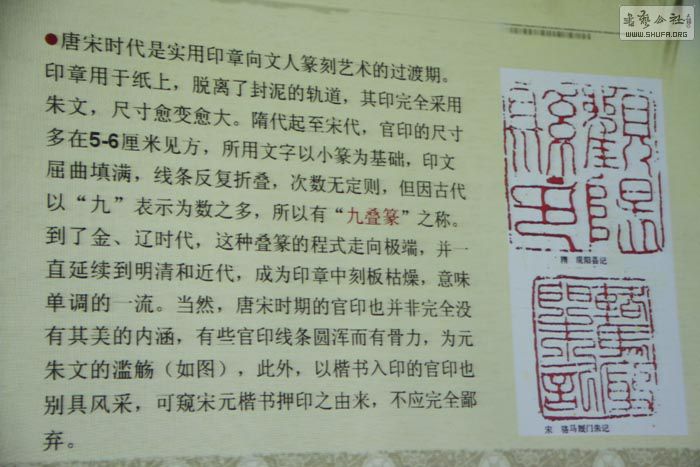 ●唐宋时代是实用印章向文人篆刻艺术的过渡期。
印章用于纸上，脱离了封泥的轨道，其印完全采用
朱文，尺寸愈变愈大。隋代起至宋代，官印的尺寸
多在5-6厘米见方，所用文字以小篆为基础，印文
屈曲填满，线条反复折叠，次数无定则，但因古代
以“九”表示为数之多，所以有“九叠篆”之称。
到了金、辽时代，这种叠篆的程式走向极端，并一
直延续到明清和近代，成为印章中刻板枯燥，意味
单调的一流。当然，唐宋时期的官印也并非完全没
有其美的内涵，有些官印线条圆浑而有骨力，为元
朱文的滥觞（如图），此外，以楷书入印的官印也
别具风采，可窥宋元楷书押印之由来，不应完全鄙
弃。
隋 观阳县记
宋 骆马厩门朱记
书艺公社
WWW.SHUFA.ORG